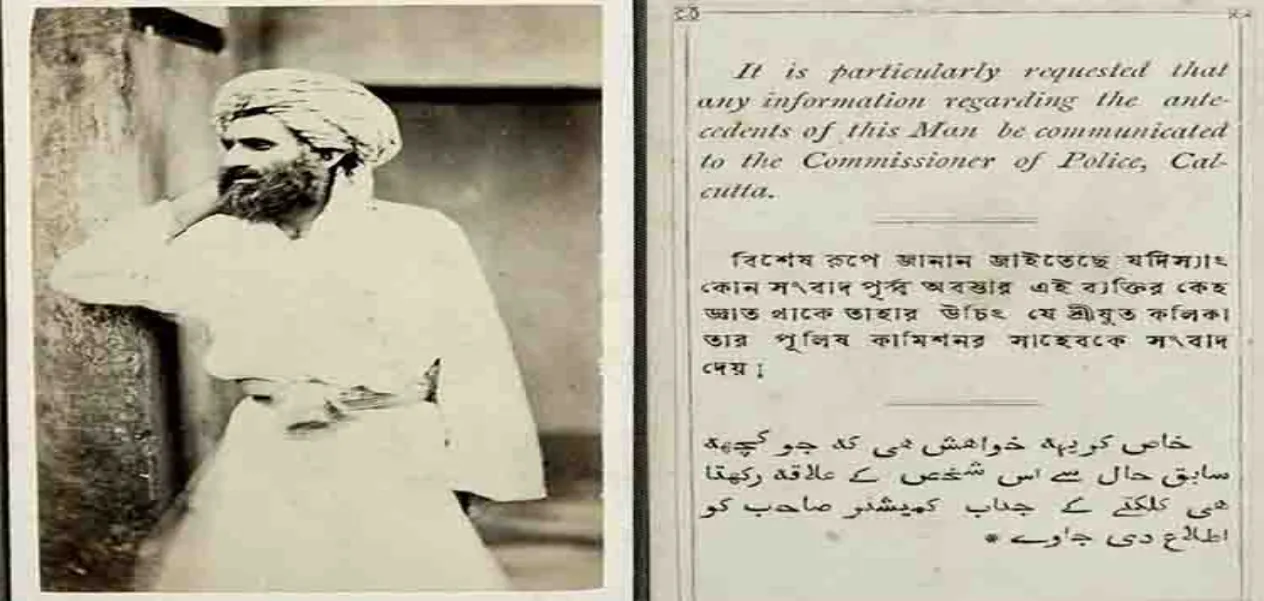 It is particularly requested that
any information regarding the ante-
cedents of this Man be communicated
to the Commissioner of Police, Cal-
cutta.
বিশেষ রুপে জানান জাইতেছে যদিস্যাৎ
কোন সংবাদ পূর্ব্ব অবস্তার এই ব্যক্তির কেহ
জ্ঞাত থাকে তাহার উচিৎ যে শ্রীযুত কলিকা
তার পূলিষ কামিশনর সাহেবকে সংবাদ
দেয়।
خاص کر یہہ خواهش هی که جو کچهه
سابق حال سے اس شخص کے علاقه رکهتا
هی کلکتے کے جناب کمیشنر صاحب کو
اطلاع دی جاوے *